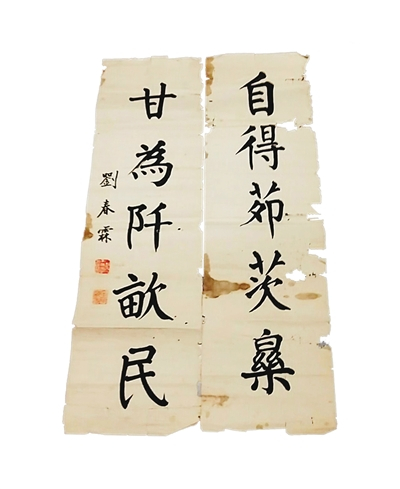 自得茆茨樂
甘為阡畝民
劉春霖